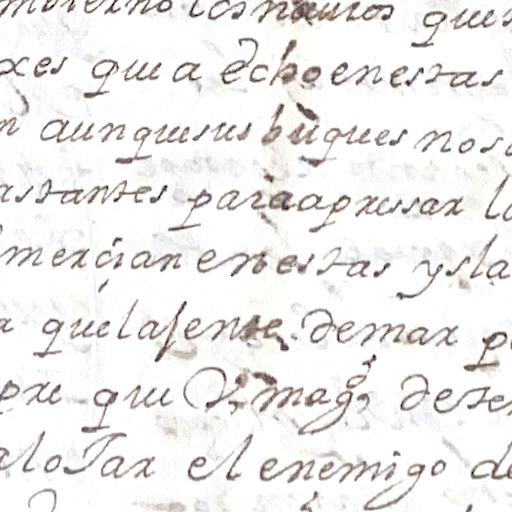 los nauios que
xes que a echo en estas
aunque sus buques no so
astantes para apressar lo
mercian en estas ysla
que la jente de mar p
pre que V. mag.d dese
alotar el enemigo de